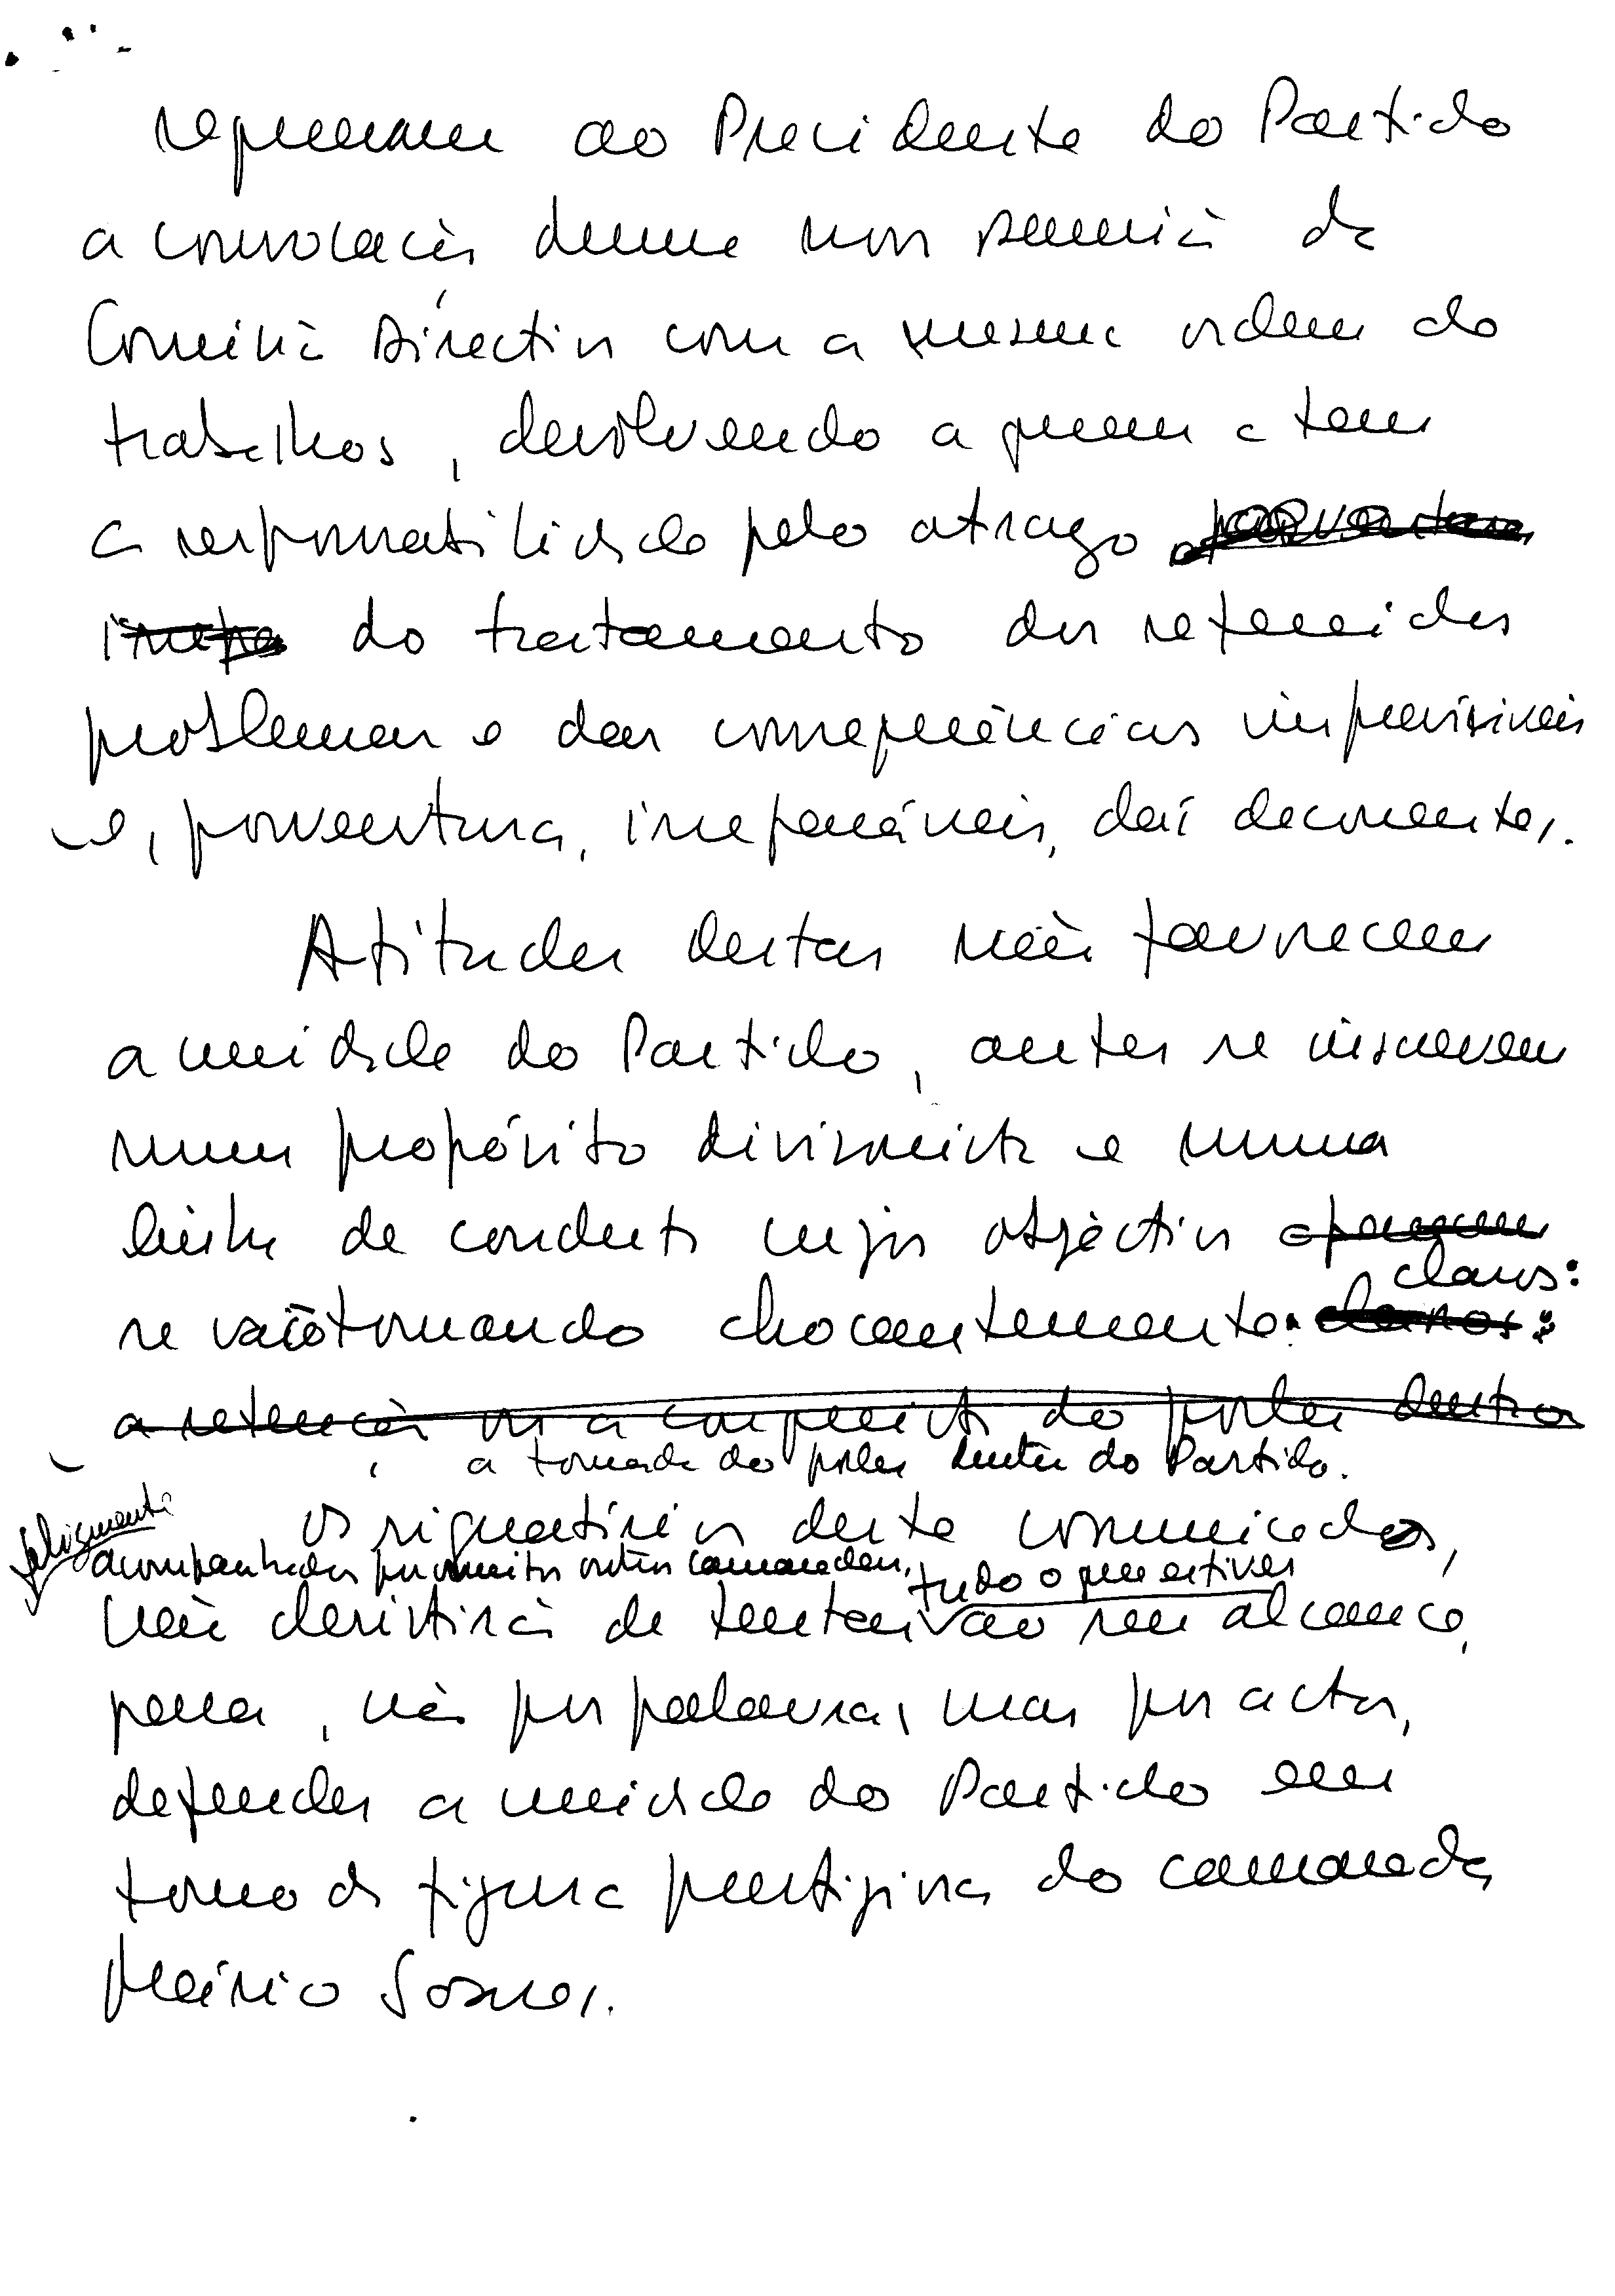 requereram ao Presidente do Partido
a convocação duma nova reunião da
Comissão Directiva com a mesma ordem de
trabalhos, devolvendo a quem a tem
a responsabilidade pelo atraso porventura
irrepa do tratamento dos referidos
problemas e das consequências imprevisíveis
e, porventura, irreparáveis, daí decorrentes.
Atitudes destas não favorecem
a unidade do Partido, antes se inscrevem
num propósito divisionista e numa
linha de conduta cujos objectivos aparecem
claros:
se vão tornando chocantemente claros:
a retenção ou a conquista do poder dentro
a tomada do poder dentro do Partido.
Os signatários deste comunicado,
felizmente
acompanhados por muitos outros camaradas,
tudo o que estiver
não desistirão de tentar ao seu alcance,
para, não por palavras, mas por actos,
defender a unidade do Partido em
torno da figura prestigiosa do camarada
Mário Soares.